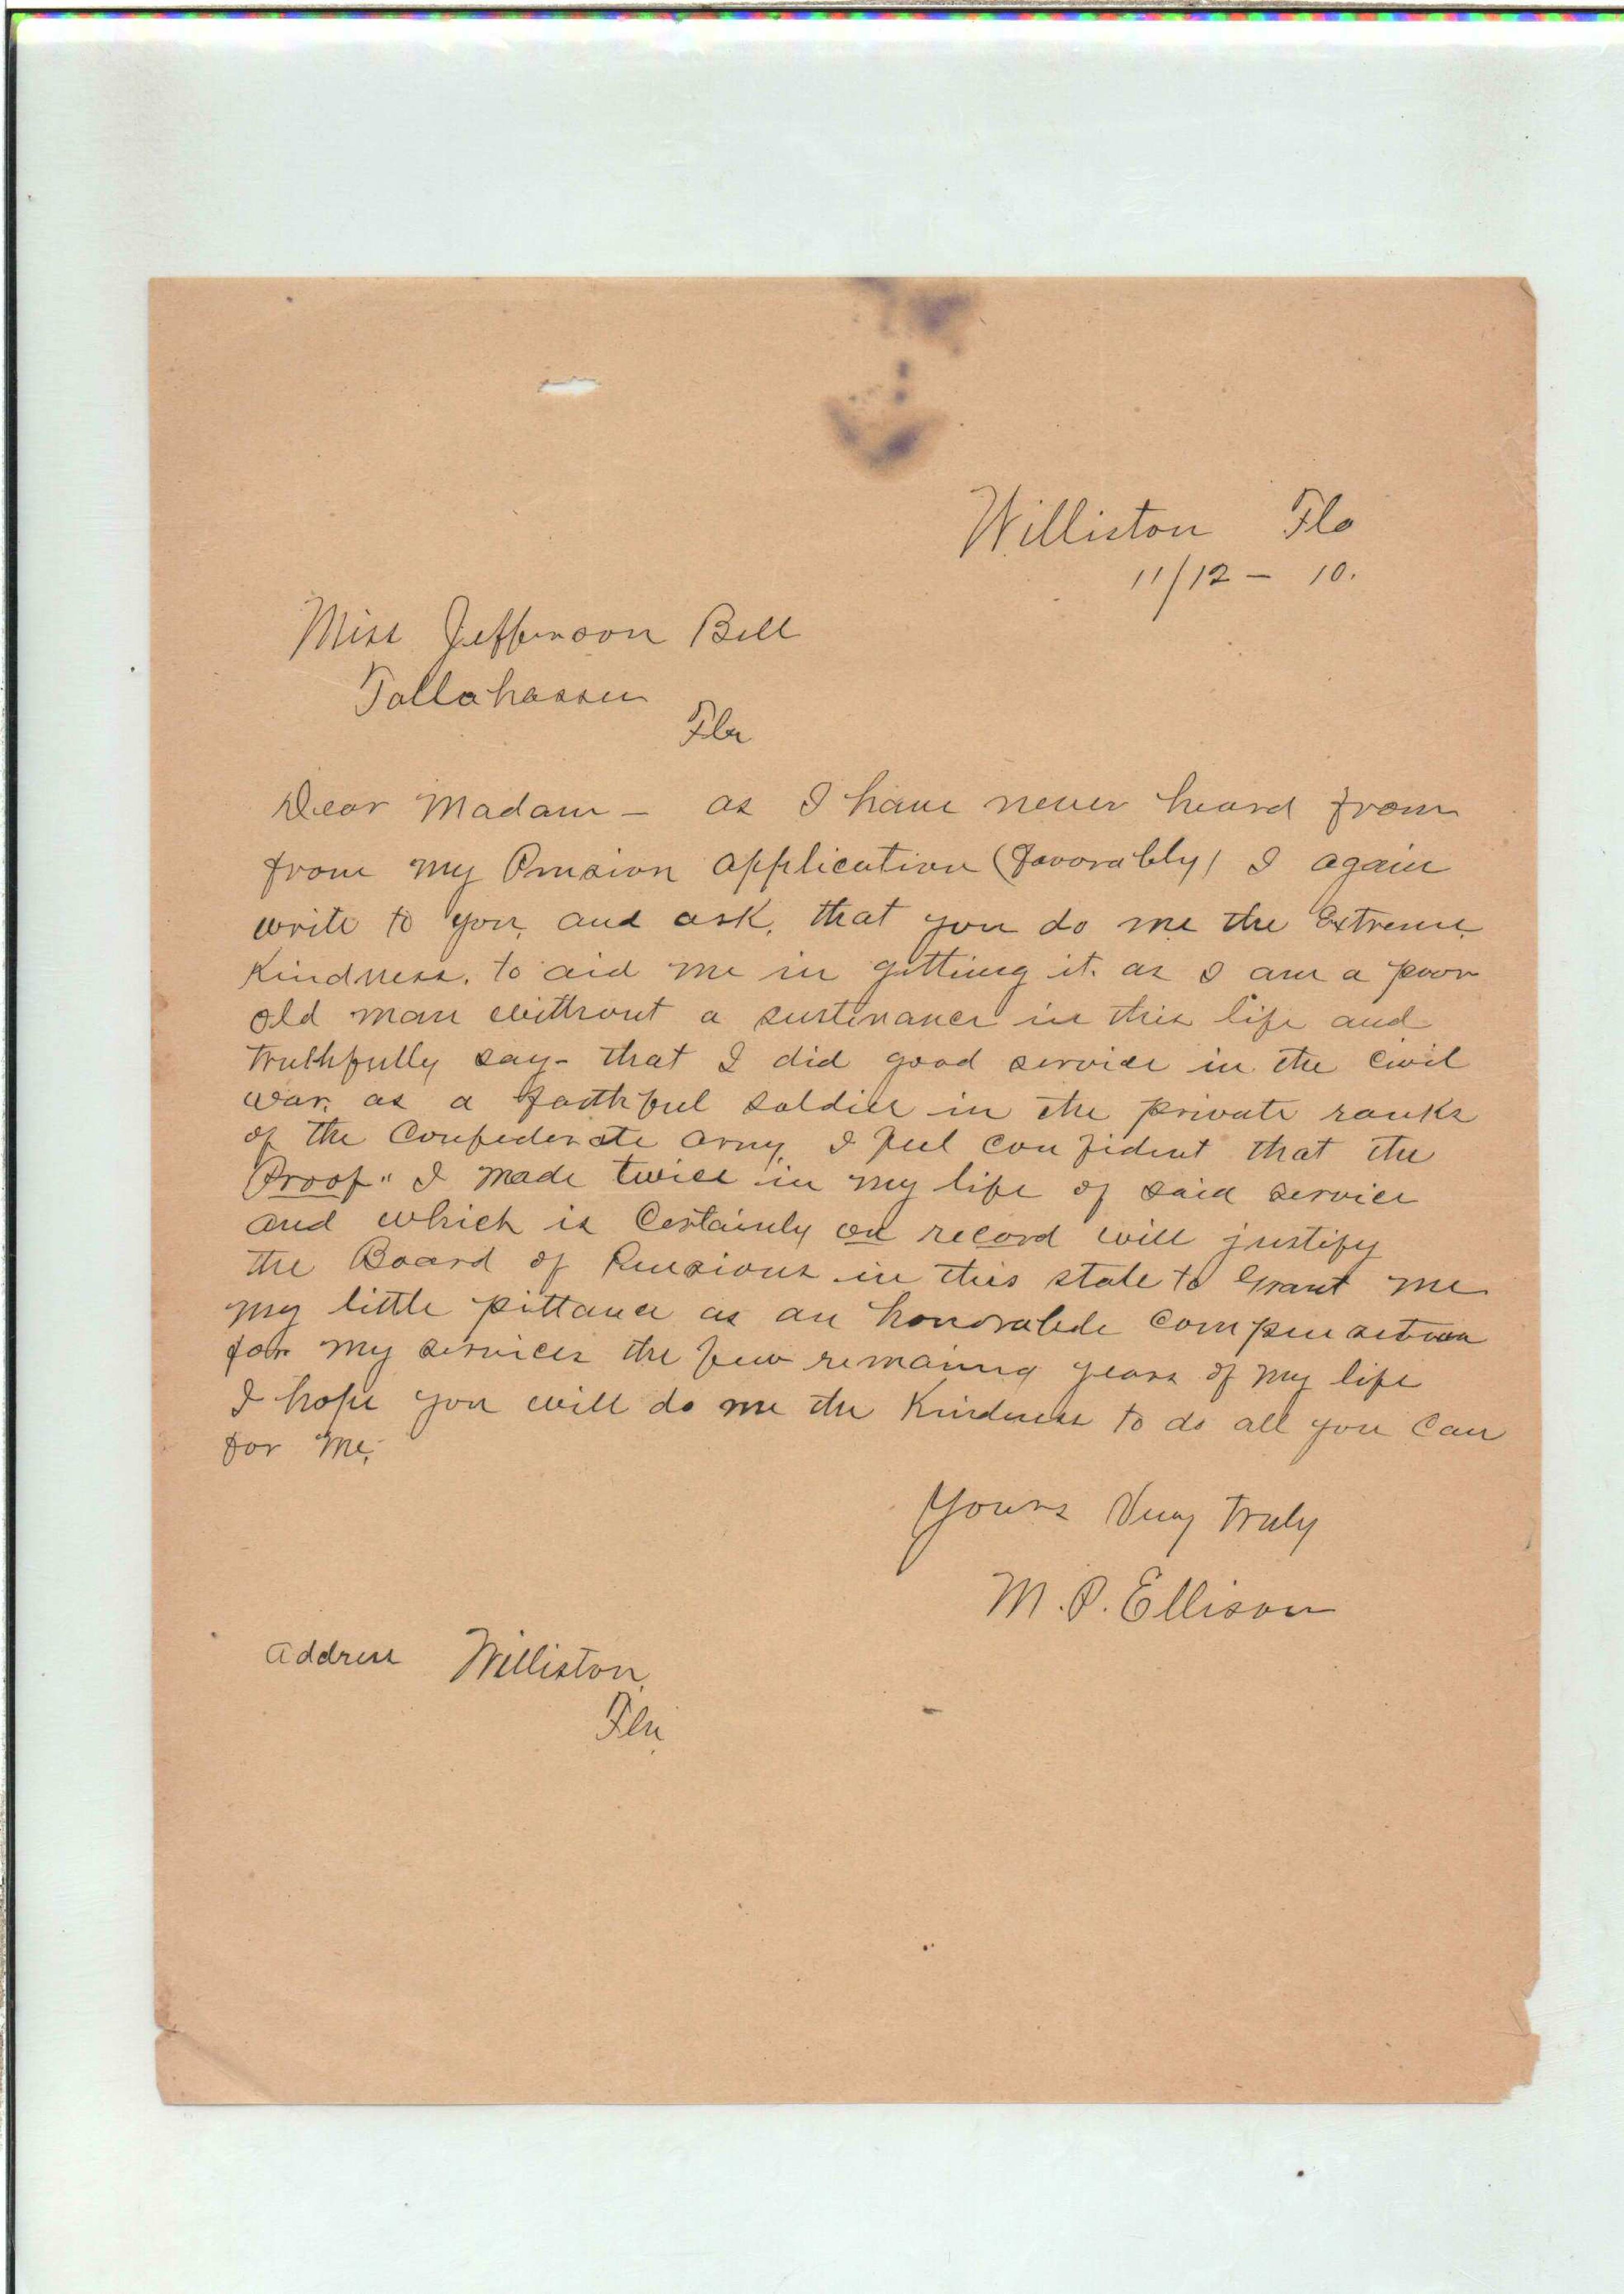 Williston Fla
11/12 - 10.
Miss Jefferson Bell
Tallahassee
Fla
Dear Madam - as I have never heard from
from my Pension application (favorably) I again
write to you, and ask, that you do me the Extreme
Kindness. to aid me in getting it. as I am a poor
old man without a sustenance in this life and
truthfully say - that I did good service in the Civil
War. as a faithful soldier in the private ranks
of the Confederate army, I feel confident that the
Proof" I made twice in my life of said service
and which is Certainly on record will justify
the Board of Pensions in this state to Grant me
my little pittance as an honorable compensation
for my services the few remaining years of my life
I hope you will do me the Kindness to do all you can
for me,
Yours Very truly
M. P. Ellison
Address Williston,
Fla